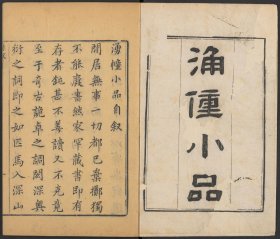 涌幢小品
湧幢小品自叙
閒居無事一切都已棄擲獨
不能廢書然家罕藏書即有
存者鈍甚不善讀又不克竟
至于奇古詭卓之調閎深奧
衍之詞即之如匹馬入深山